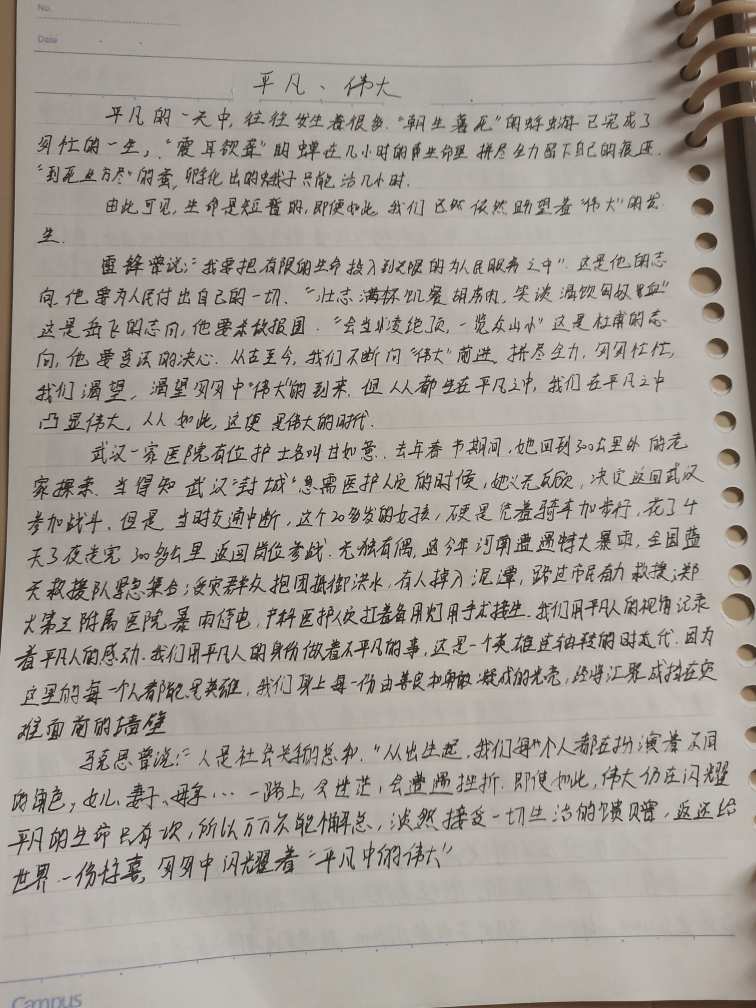 No.
Date
平凡、伟大
平凡的一天中,往往发生着很多."朝生暮死"的蜉蝣已完成了
匆忙的一生,"震耳欲聋"的蝉在几小时的生命里拼尽全力留下自己的痕迹.
"到死丝方尽"的蚕,孵化出的蛾子只能活几小时.
由此可见,生命是短暂的,即便如此,我们已然依然盼望着"伟大"的发
生.
雷锋曾说:"我要把有限的生命投入到无限的为人民服务之中".这是他的志
向,他要为人民付出自己的一切."壮志满怀饥餐胡虏肉,笑谈渴饮匈奴血"
这是岳飞的志向,他要杀敌报国."会当凌绝顶,一览众山小"这是杜甫的志
向,他要变法的决心.从古至今,我们不断向"伟大"前进,拼尽全力,匆匆忙忙,
我们渴望,渴望匆匆中"伟大"的到来.但人人都生在平凡之中,我们在平凡之中
凸显伟大,人人如此,这便是伟大的时代.
武汉一家医院有位护士名叫甘如意.去年春节期间,她回到300公里外的老
家探亲.当得知武汉"封城"急需医护人员的时候,她义无反顾,决定返回武汉
参加战斗.但是当时交通中断,这个20多岁的女孩,硬是凭着骑车加步行,花了4
天3夜走完300多公里返回岗位参战.无独有偶,这今年河南遭遇特大暴雨,全国蓝
天救援队紧急集合;受灾群众抱团抵御洪水,有人掉入泥潭,路过市民奋力救援;郑
大第三附属医院暴雨停电,产科医护人员扛着备用灯用手术接生.我们用平凡人的视角记录
着平凡人的感动.我们用平凡人的身份做着不平凡的事,这是一个英雄连轴转的时代.因为
这里的每一个人都能是英雄,我们身上每一份由善良和勇敢凝成的光亮,终将汇聚成挡在灾
难面前的墙壁
马克思曾说:"人是社会关系的总和."从出生起,我们每个人都在扮演着不同
的角色,女儿、妻子、母亲…一路上,会迷茫,会遭遇挫折.即使如此,伟大仍在闪耀
平凡的生命只有一次,所以万万不能懈怠,淡然接受一切生活的馈赠,返还给
世界一份惊喜,匆匆中闪耀着"平凡中的伟大"
Campus